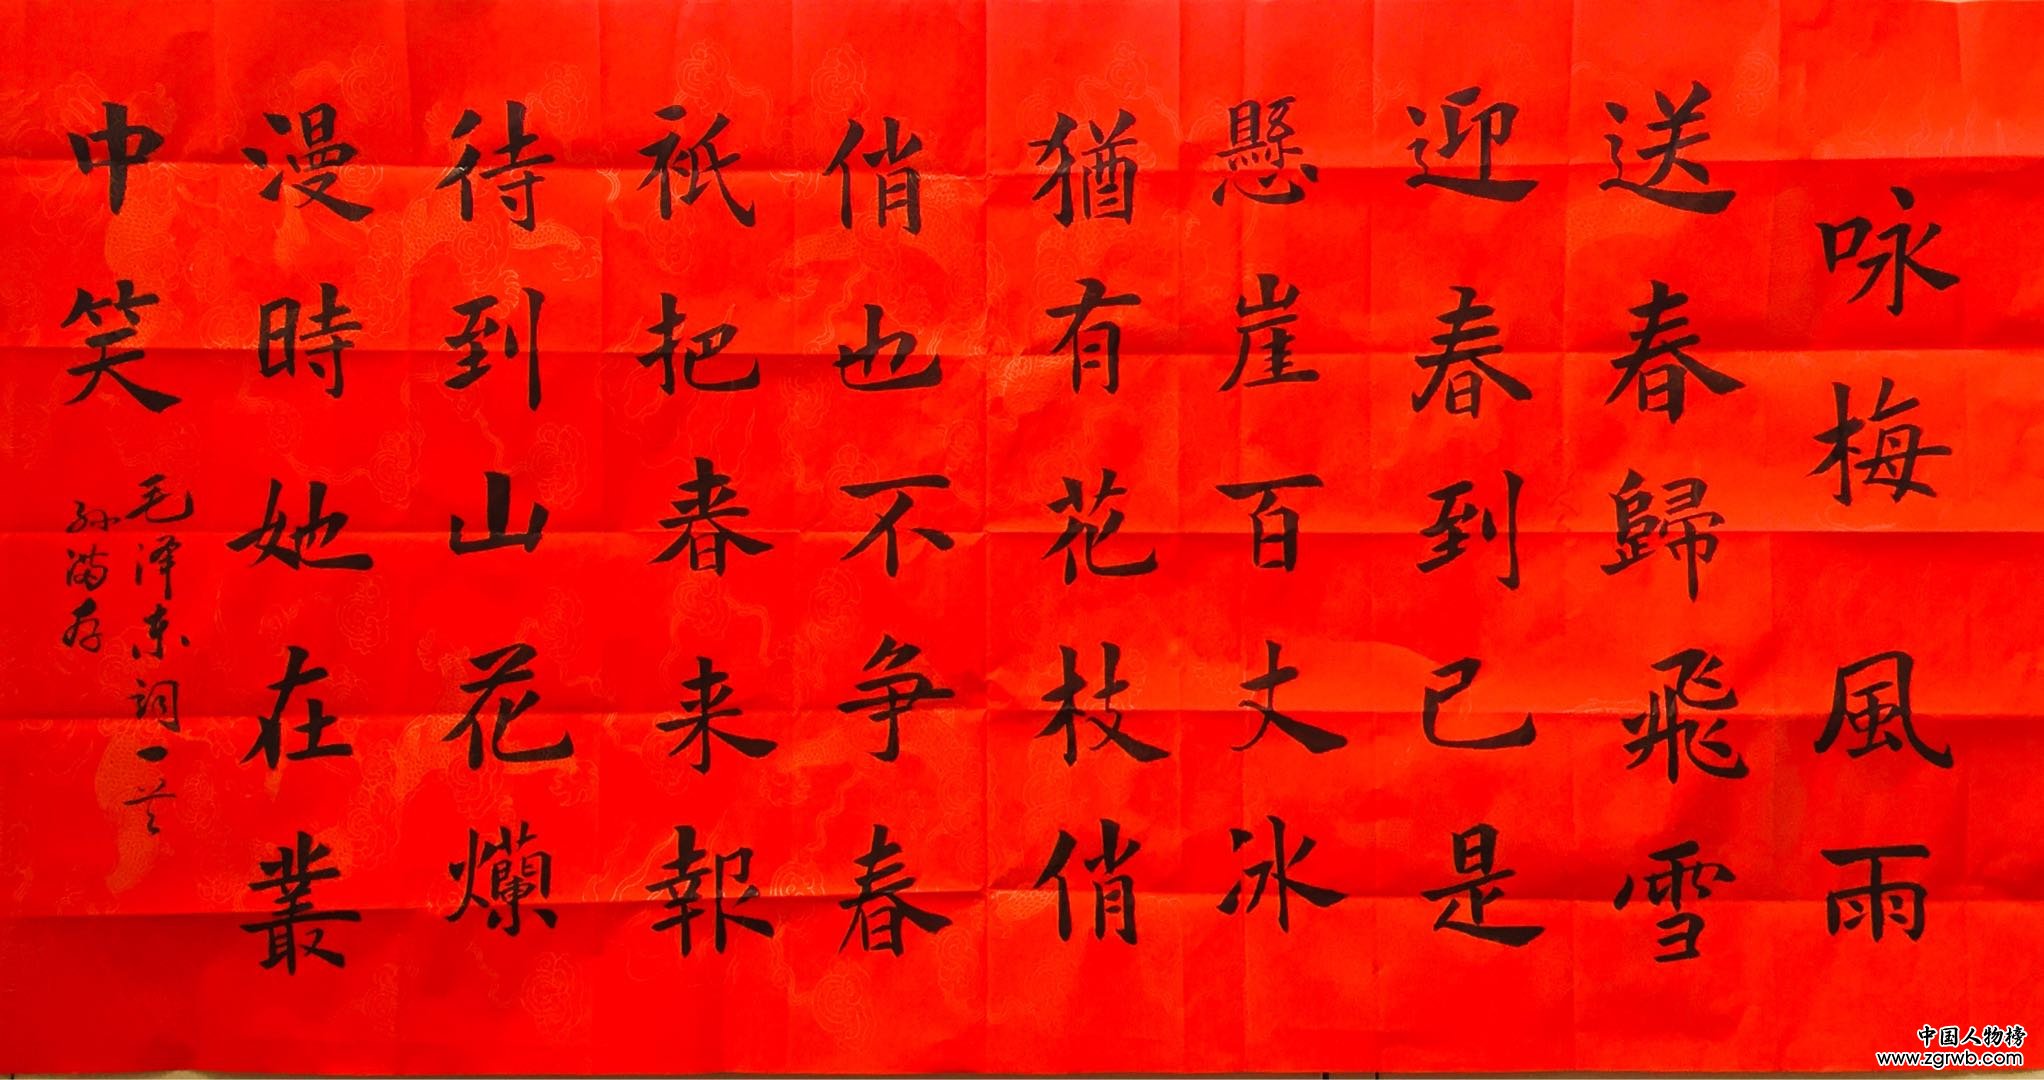 咏梅風雨
送春歸飛雪
迎春到已是
懸崖百丈冰
猶有花枝俏
俏也不争春
祇把春来報
待到山花爛
漫時她在叢
中笑
毛泽东词一首
孙满存
中国人物榜
www.zgrwb.com